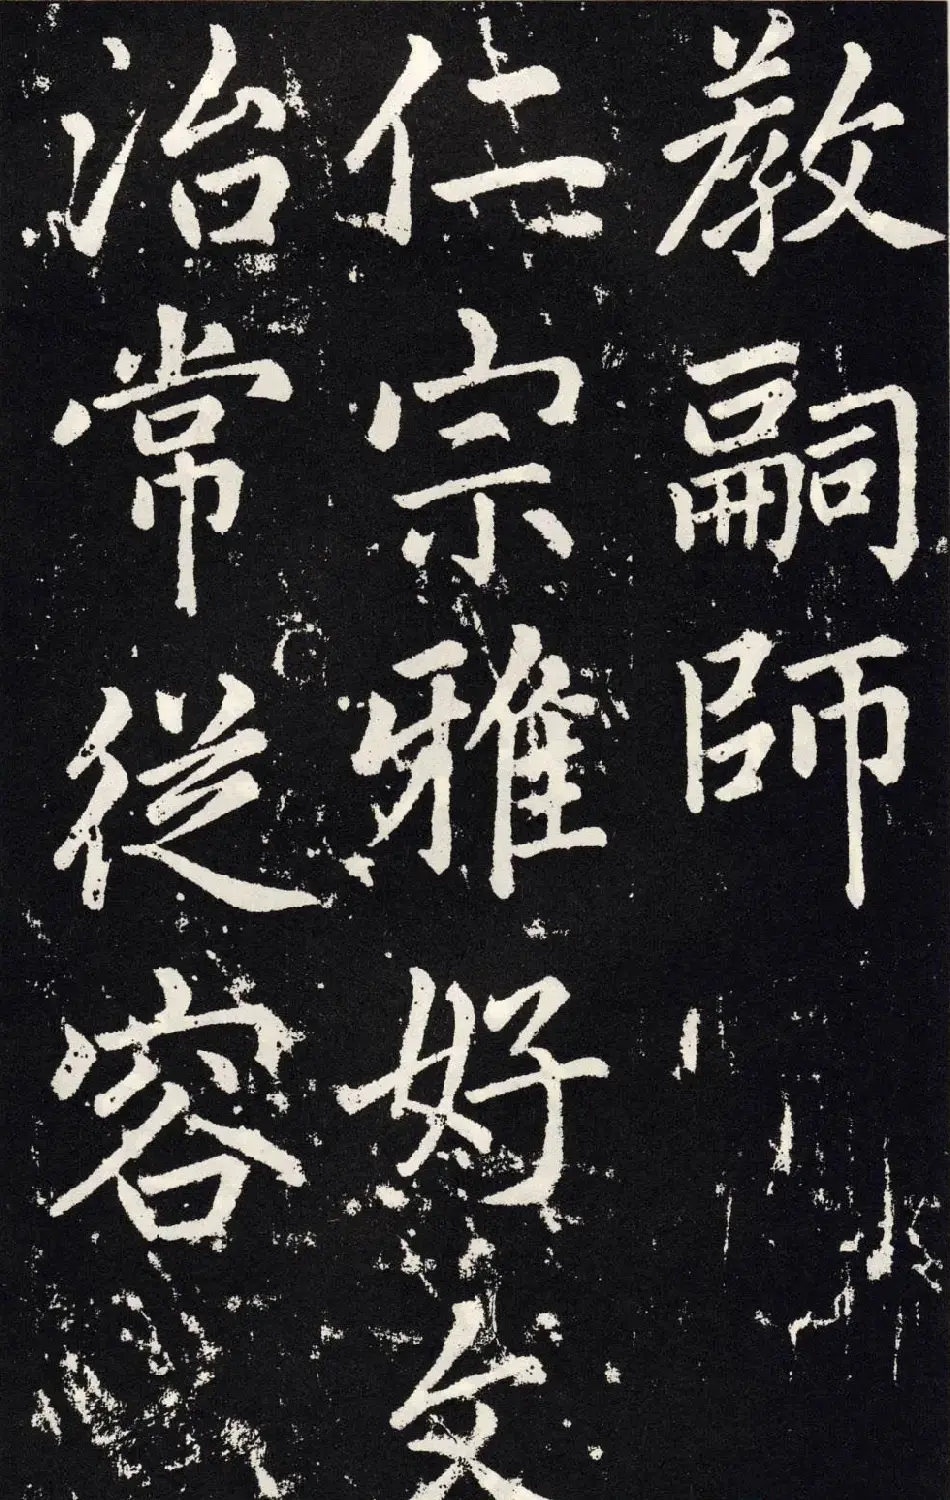 教嗣師
仁宗雅好文
治常從容